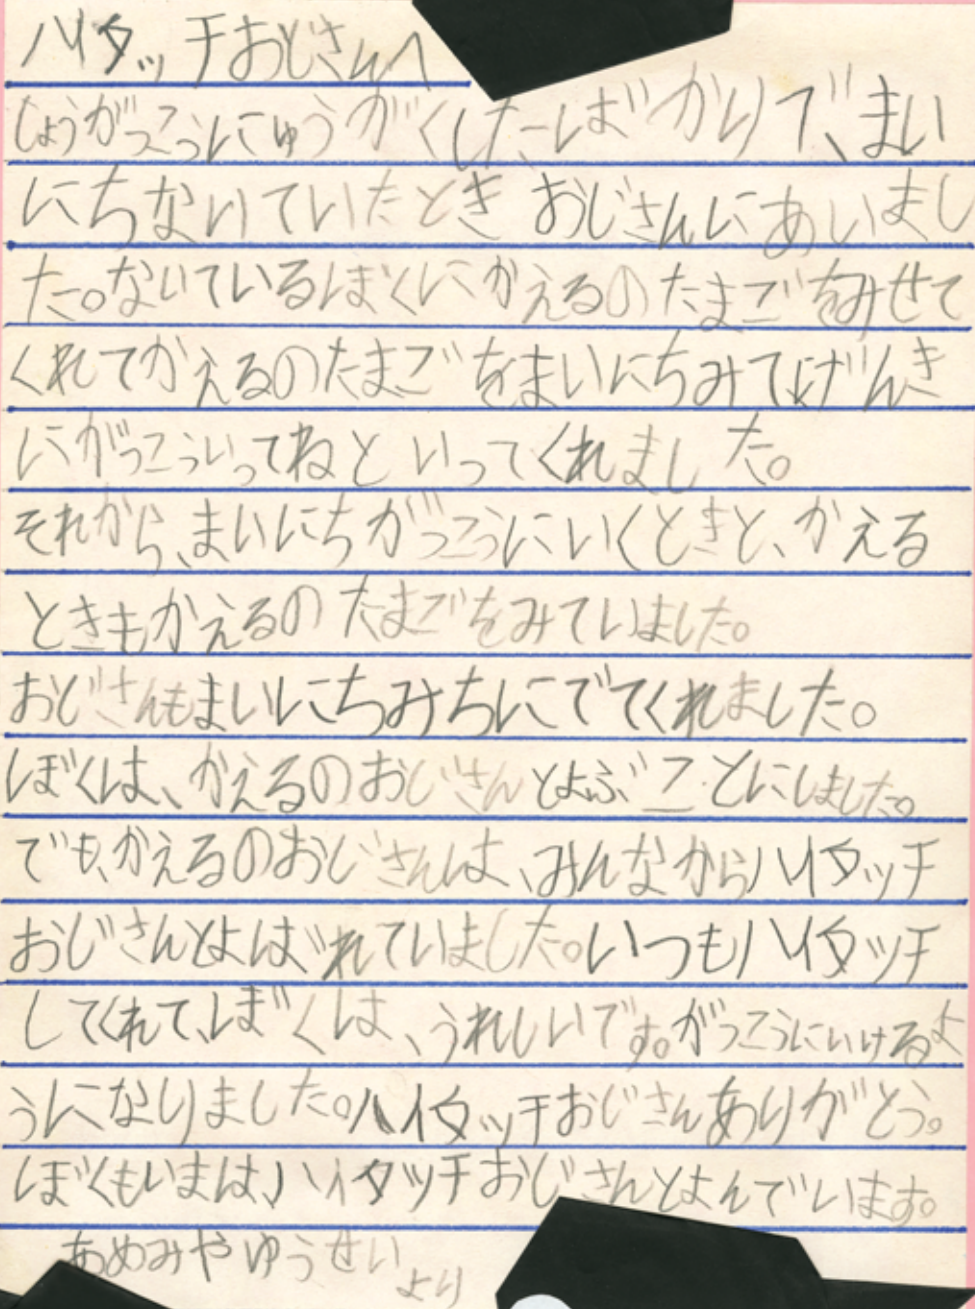 ハイタッチおじさんへ
しょうがっこうにゅうがくしたばかりで、まい
にちないていたとき おじさんにあいまし
た。ないているぼくにかえるのたまごをみせて
くれてかえるのたまごをまいにちみてげんき
にがっこういってねといってくれました。
それから、まいにちがっこうにいくときと、かえる
ときもかえるのたまごをみていました。
おじさんもまいにちみちにでてくれました。
ぼくは、かえるのおじさんとよぶことにしました。
でも、かえるのおじさんは、みんなからハイタッチ
おじさんとよばれていました。いつもハイタッチ
してくれて、ぼくは、うれしいです。がっこうにいけるよ
うになりました。ハイタッチおじさんありがとう。
ぼくもいまは、ハイタッチおじさんとよんでいます。
あめみやゆうせいより